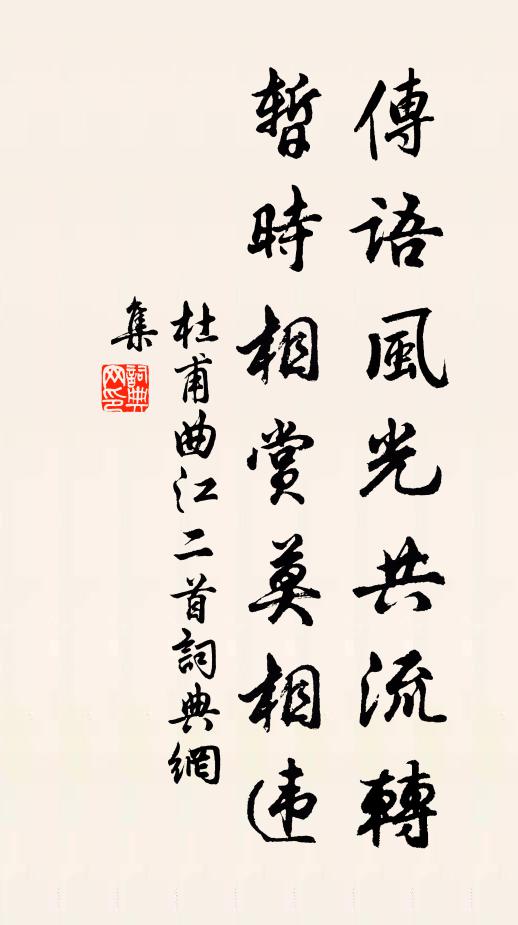 傳語風光共流轉
暫時相賞莫相违
杜甫曲江二首詞典網
集
詞典网印